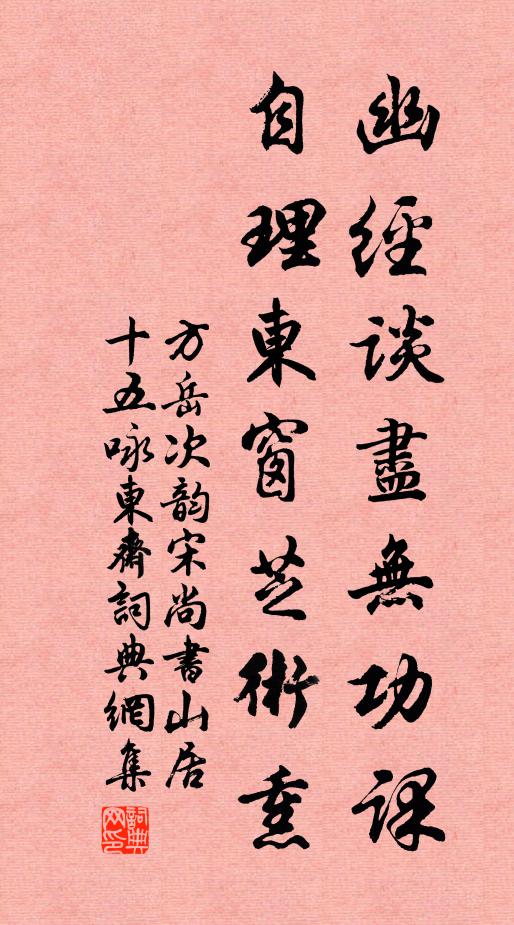 幽經談盡無功課
自理東窗芝術熏
方岳次韵宋尚書山居
十五咏東齋詞典網集
詞典网印